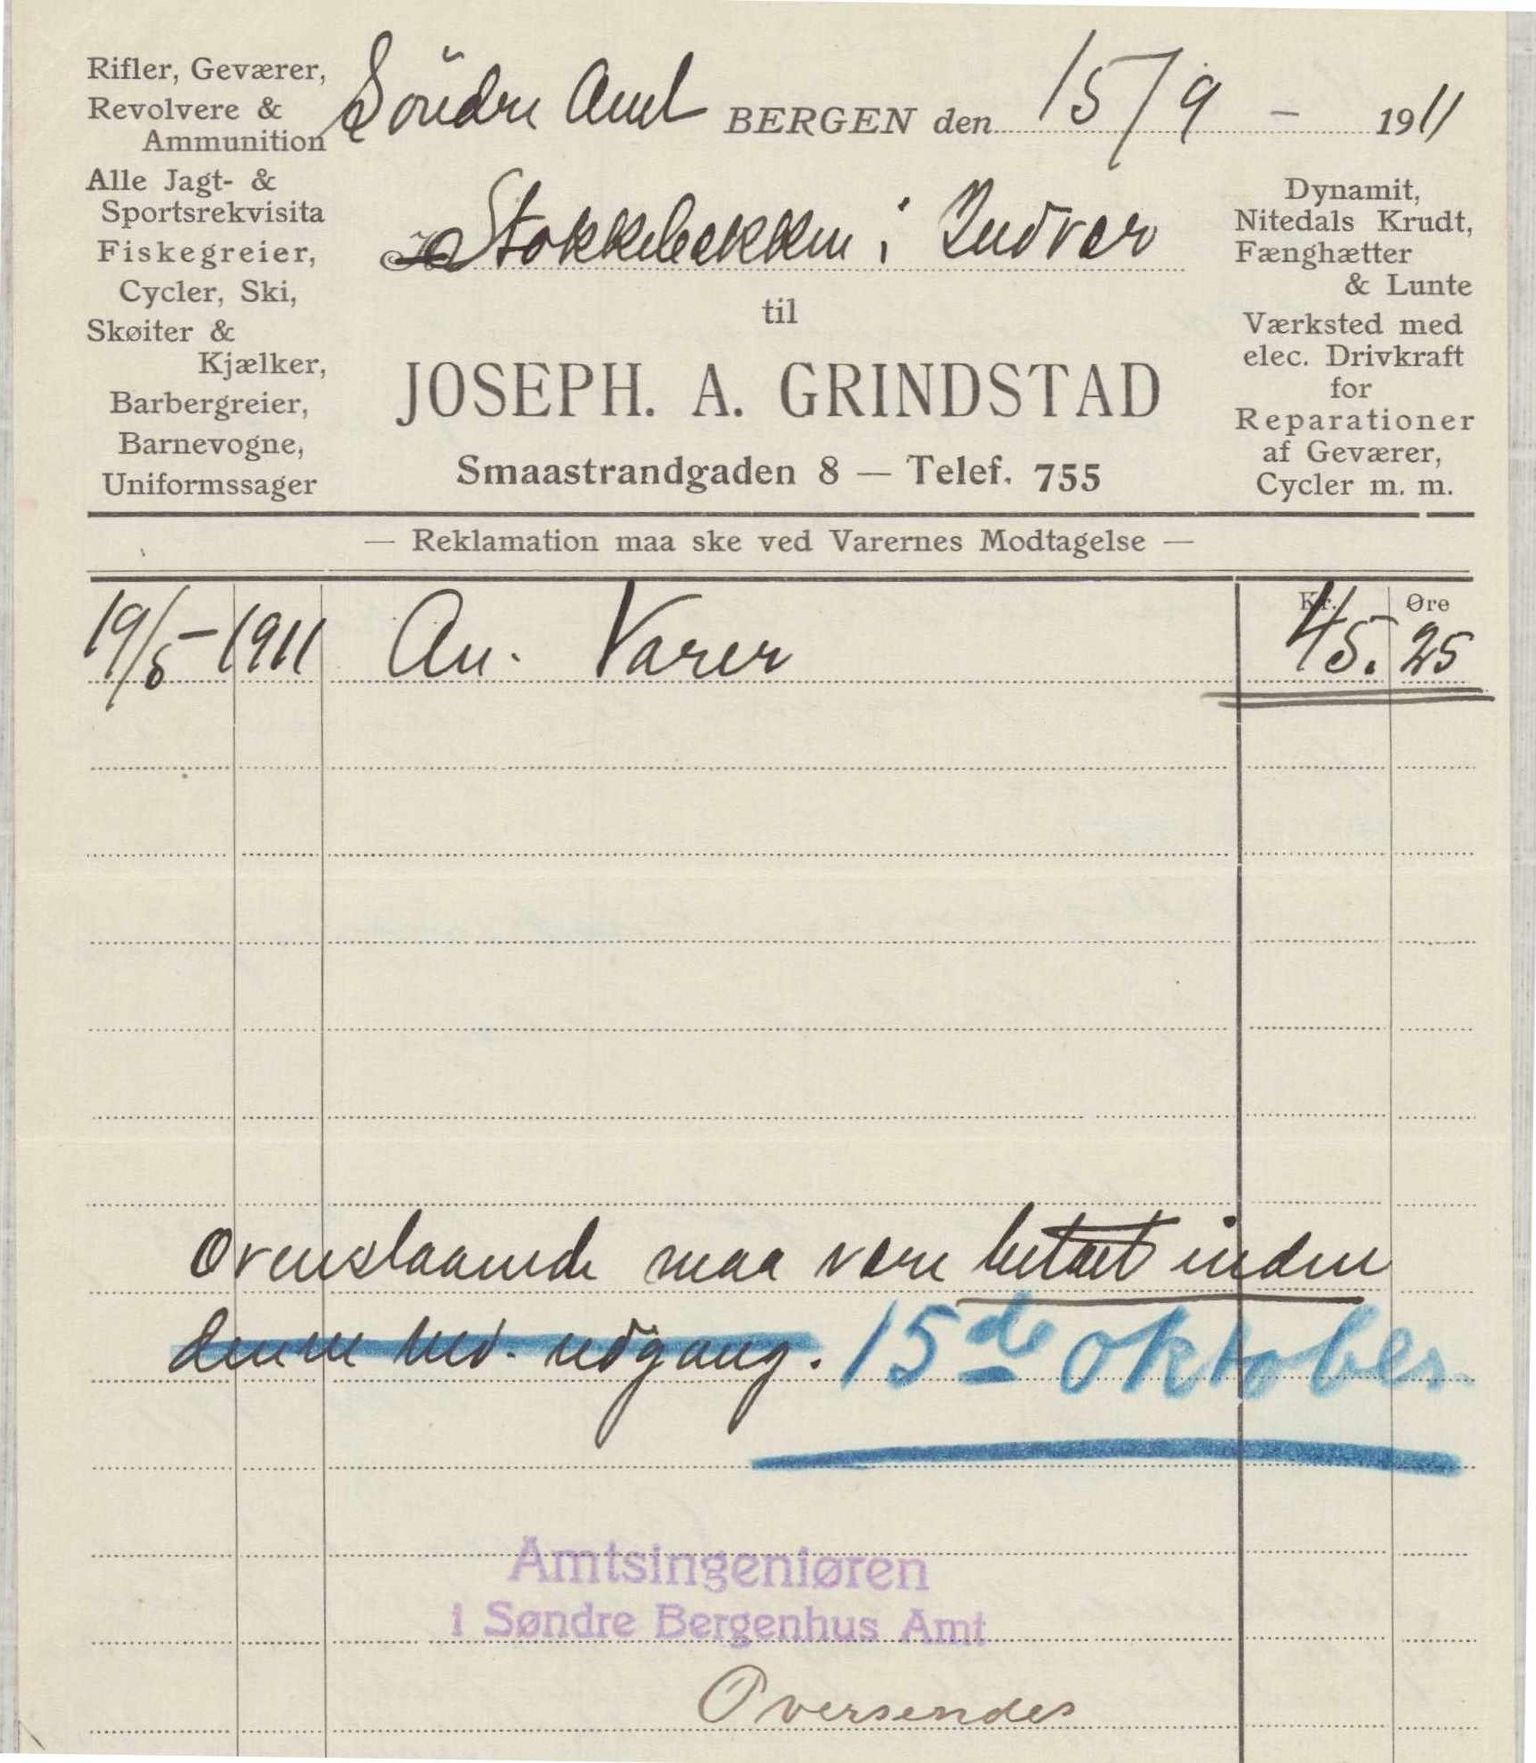 Rifler, Geværer,
Revolvere &
Ammunition
Alle Jagt- &
Sportsrekvisita
Fiskegreier,
Cycler, Ski,
Skøiter &
Kjælker,
Barbergreier,
Barnevogne,
Uniformssager
Söndre Amt BERGEN den 15/9 - 1911
Stokkebækken i
til
JOSEPH. A. GRINDSTAD
Smaastrandgaden 8 — Telef. 755
Dynamit,
Nitedals Krudt,
Fænghætter
& Lunte
Værksted med
elec. Drivkraft
for
Reparationer
af Geværer,
Cycler m. m.
— Reklamation maa ske ved Varernes Modtagelse —
Kr. Øre
19/5 - 1911 An. Varer 45. 25
Ovenstaaende maa være betalt inden
denne Md. udgang. 15de oktober
Amtsingeniøren
i Søndre Bergenhus Amt
Oversendes